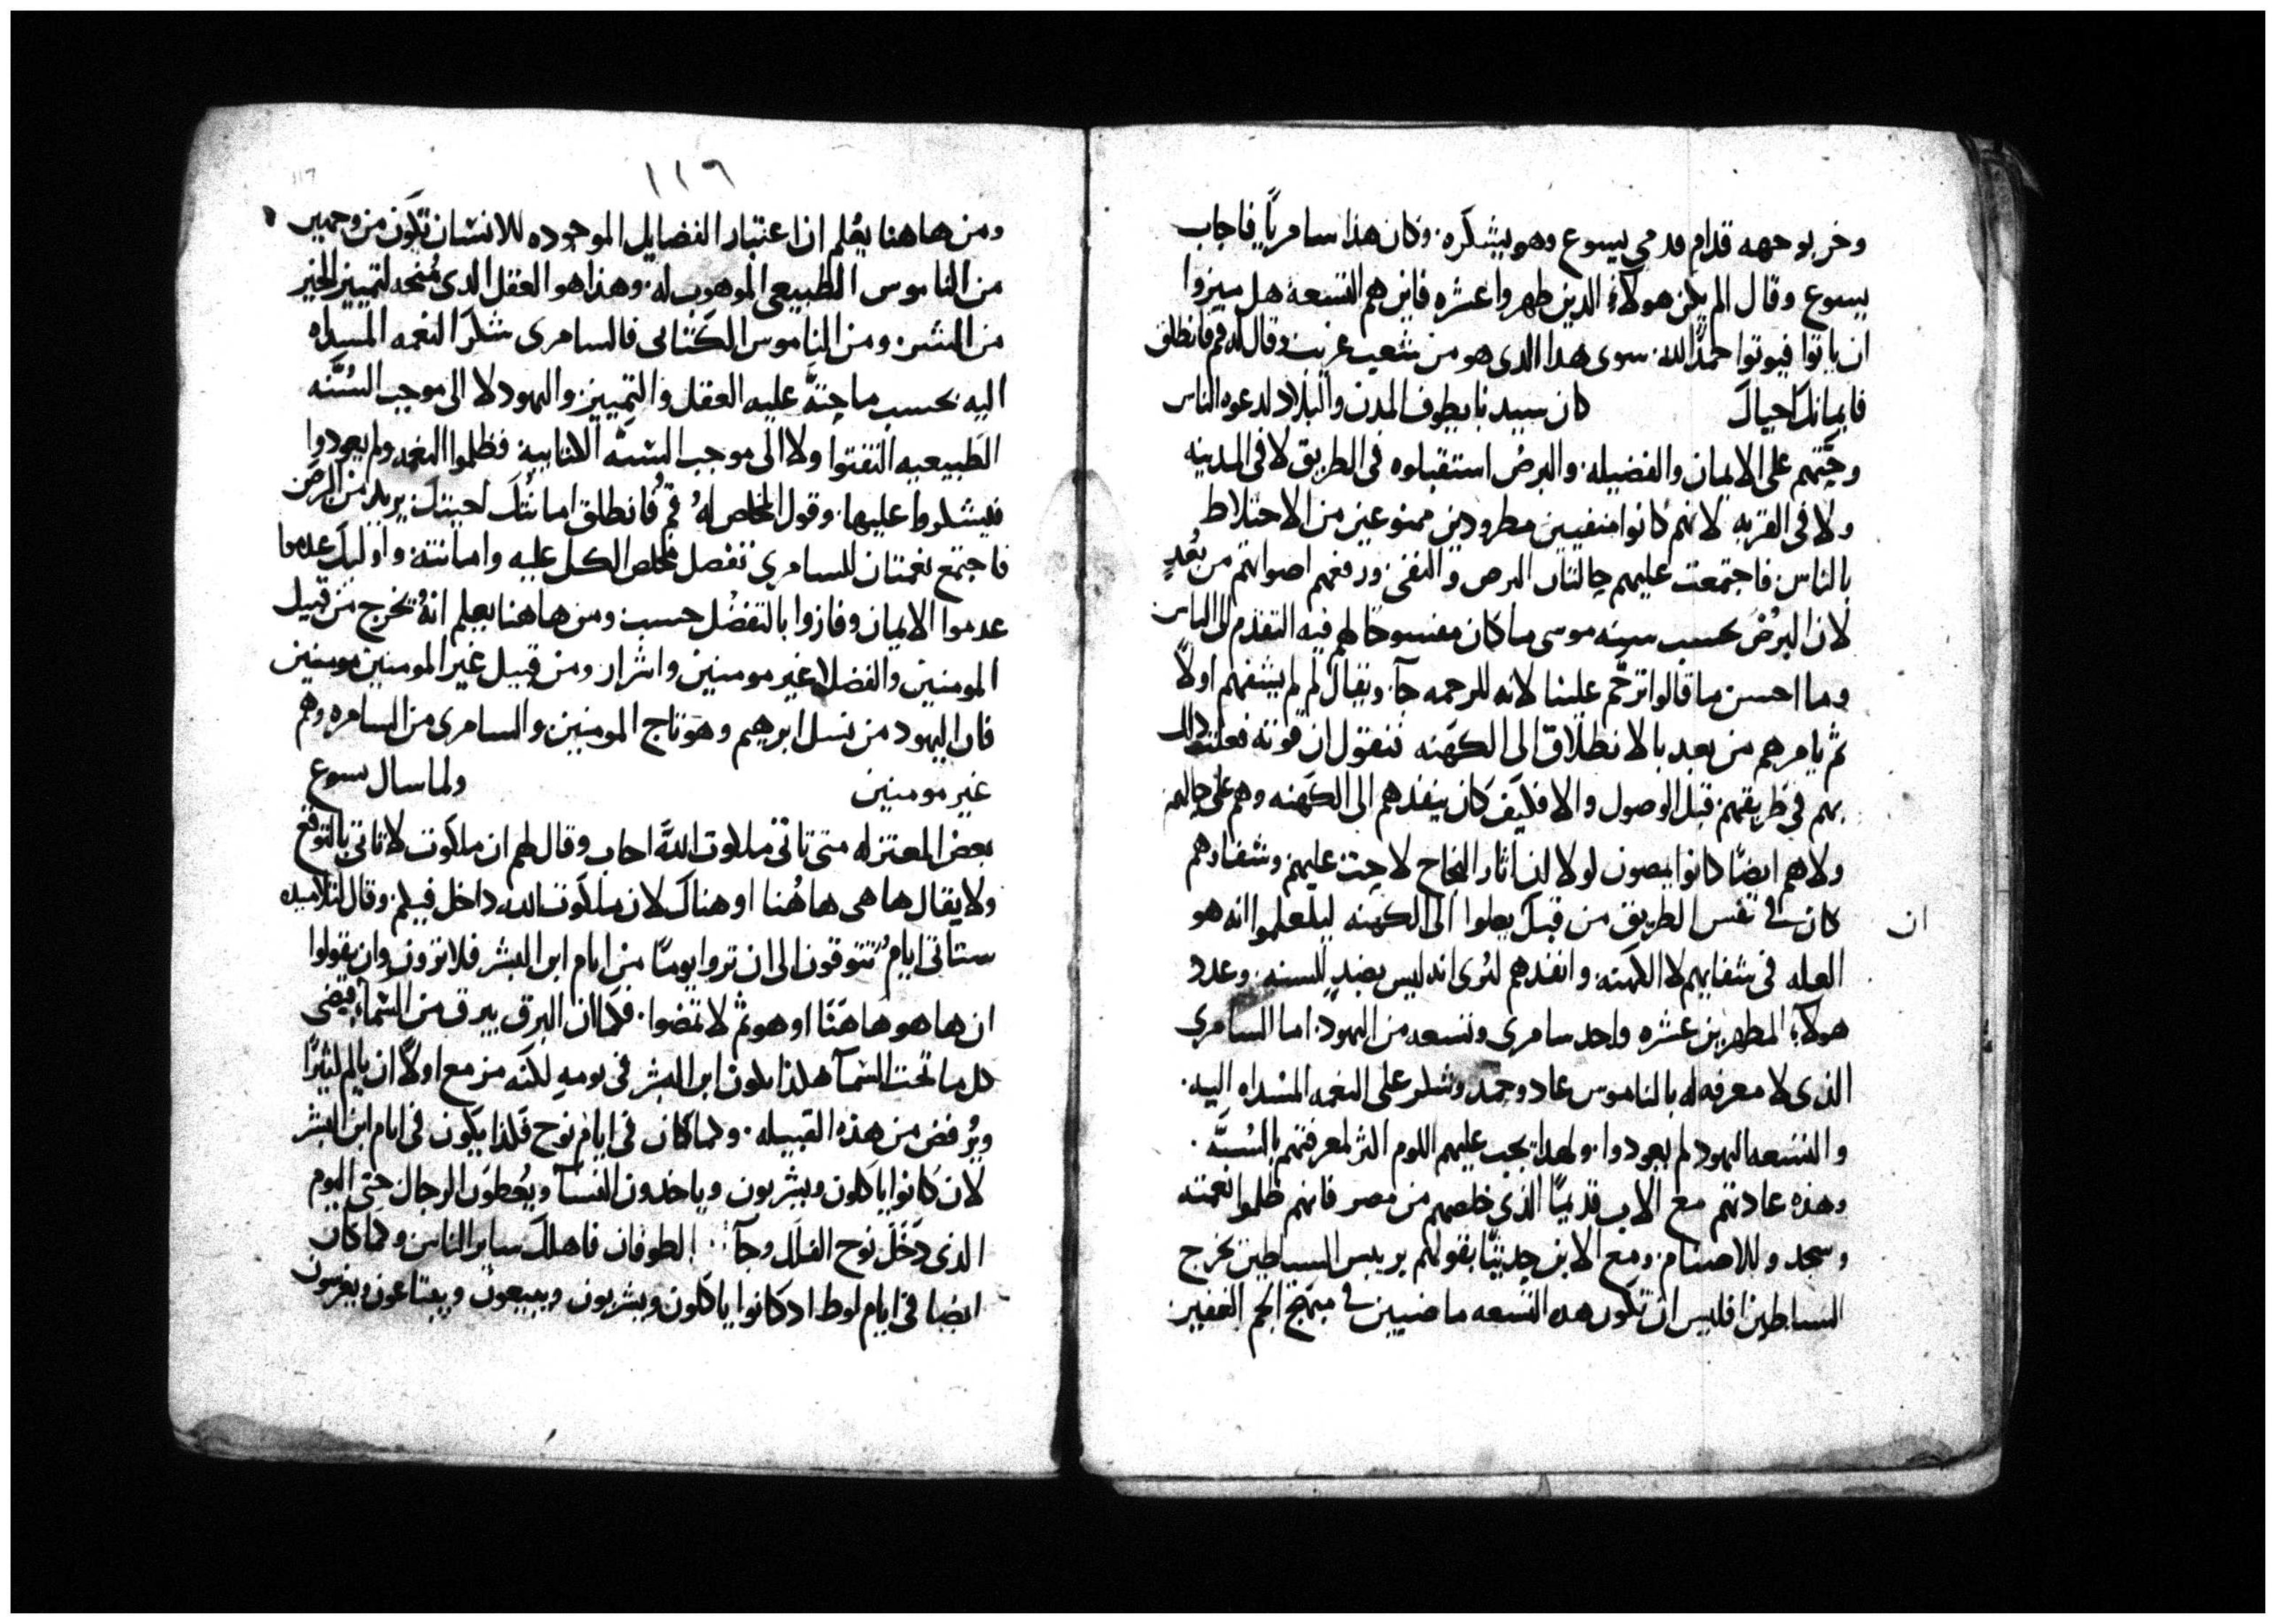 وخر بوجهه قدام قدمي يسوع وهو يشكره. وكان هذا سامريًا فاجاب
يسوع وقال الم يكن هولاء الدين طهروا عشره فاين هم التسعه هل ميزوا
ان ياتوا فيوتوا حمدًا لله. سوى هدا الدى هو من شعب غريب وقال له قم فانطلق
فايمانك احياك كان سيدنا يطوف المدن والبلاد لدعوه الناس
وحثهم على الايمان والفضيله. والبرص استقبلوه فى الطريق لا فى المدينه
ولا فى القريه لانهم كانوا منفيين مطرودين ممنوعين من الاختلاط
بالناس. فاجتمعت عليهم حالتان البرص والنفى ورفعهم اصواتهم من بُعدٍ
لان البرُص بحسب سنه موسى ما كان مفسوحًا لهم فيه التقدم الى الناس
وما احسن ما قالوا ترحَّم علينا لانه للرحمه جآ. ويقال لم لم يشفهم اولاً
ثم يامرهم من بعد بالانطلاق الى الكهنه فنقول ان قوته فعلت دلك
بهم في طريقهم. قبل الوصول والا فكيف كان ينفدهم الى الكهنه وهم على حالهم
ولا هم ايضًا كانوا يمضون لولا ان اثار النجاح لاحت عليهم وشفاوهم
كان في نفس الطريق من قبل يصلوا الى الكهنه ليعلموا انه هو
ان
العله فى شفايهم لا الكهنه وانفدهم لتُرى انه ليس بضدٍ للسنه. وعدد
هولآء المطهرين عشره واحد سامرى وتسعه من اليهود. اما السامرى
الذى لا معرفه له بالناموس عاد وحمد وشكر على النعمه المسداه اليه.
والتسعه اليهود لم يعودوا. ولهدا يجب عليهم اللوم اكثر لمعرفتهم بالسُنَّه.
وهذه عادتهم مع الاب قديمًا الذي خلصهم من مصر فانهم ظلموا نعمته
وسجدو للاصنام. ومع الابن حديثًا بقولهم بريس الشياطين يخرج
الشياطين افليس ان تكون هده التسعه ماضيين في منهج الجم الغفير
١١٩
ومن هاهنا يعُلم ان اعتبار الفضايل الموجوده للانسان تكون من وجهين
من الناموس الطبيعى الموهوب له. وهذا هو العقل الدى مُنحه لتمييز الخير
من الشر. ومن الناموس الكتابى فالسامرى شكر النعمه المسداه
اليه بحسب ما حثه عليه العقل والتمييز. واليهود لا الى موجب السُنَّه
الطبيعيه التفتوا ولا الى موجب السنه الكتابيه فظلموا النعمه ولم يعودوا
فيشكروا عليها. وقول المخلص له قُم فانطلق امانتك احيتك يريد من البرص
فاجتمع نعمتان للسامري تفضل مخلص الكل عليه وامانته. واوليك عدموا
عدموا الايمان وفازوا بالتفضُل حسب ومن هاهنا يعلم انهُ يخرج من قبيل
المومنين والفضلا غير مومنين واشرار ومن قبيل غير المومنين مومنين
فان اليهود من نسل ابرهيم وهو تاج المومنين والسامرى من السامره وهم
غير مومنين ولما سال يسوع
بعض المعتزله متى تاتى ملكوت اللَّه اجاب وقال لهم ان ملكوت لا تاتى بالتوقع
ولا يقال ها هى هاهُنا او هناك لان ملكوت الله داخل فيكم. وقال لتلاميده
ستاتى ايام تتوقون الى ان تروا يومًا من ايام ابن البشر فلا ترون وان يقولوا
ان ها هو هاهنَا او هو ثم لا تمضوا. فكما ان البرق يبرق من السماء فيضى
كل ما تحت السمآ هكذا يكون ابن البشر فى يومه لكنه مزمع اولاً ان يالم كثيرًا
ويُرفض من هذه القبيله. وكما كان فى ايام نوح فكذا يكون فى ايام ابن البشر
لان كانوا ياكلون ويشربون وياخدون النسآ ويُعطون الرجال حتى اليوم
الذى دَخَل نوح الفلك وجآ الطوفان فاهلك ساير الناس وكما كان
ايضا فى ايام لوط اد كانوا ياكلون ويشربون ويبيعون ويبتاعون ويغرسون